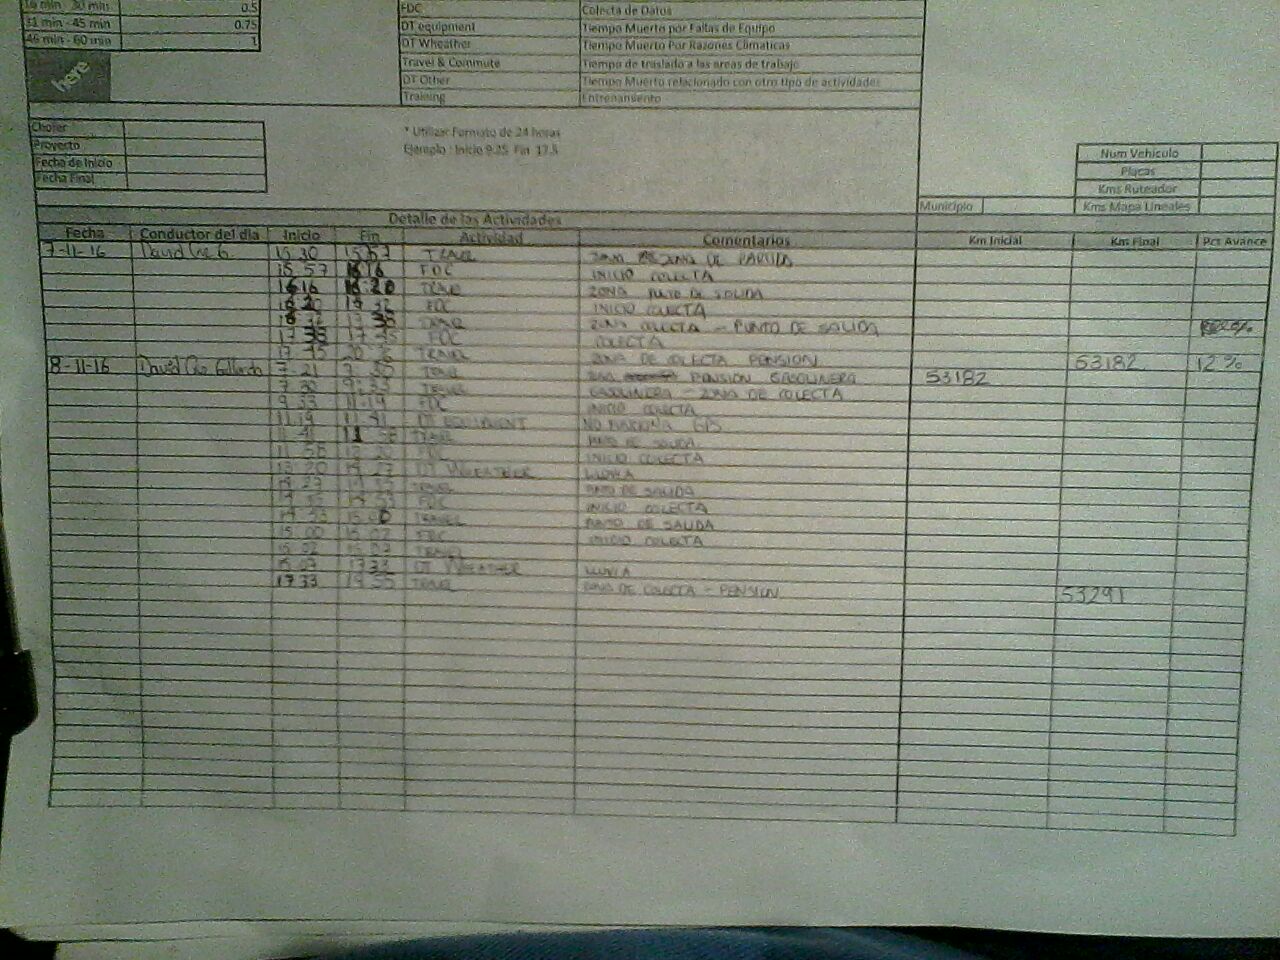 16 min - 30 min 0.5
31 min - 45 min 0.75
46 min - 60 min 1
here
FDC Colecta de Datos
DT equipment Tiempo Muerto por Fallas de Equipo
DT Wheather Tiempo Muerto Por Razones Climaticas
Travel & Commute Tiempo de traslado a las areas de trabajo
DT Other Tiempo Muerto relacionado con otro tipo de actividades
Training Entrenamiento
Chofer
Proyecto
Fecha de Inicio
Fecha Final
* Utilizar Formato de 24 horas
Ejemplo : Inicio 9.25 Fin 17.5
Num Vehiculo
Placas
Kms Ruteador
Municipio Kms Mapa Lineales
Detalle de las Actividades
Fecha Conductor del dia Inicio Fin Actividad Comentarios Km Inicial Km Final Pct Avance
7-11-16 David 15 30 15 57 TRAVEL ZONA DE PARTIDA
15 57 16 16 FDC INICIO COLECTA
16 16 16 20 TRAVEL ZONA PUNTO DE SALIDA
16 20 17 32 FDC INICIO COLECTA
17 35 TRAVEL ZONA COLECTA - PUNTO DE SALIDA
17 35 17 45 FDC COLECTA
17 45 TRAVEL ZONA DE COLECTA PENSION 53182 12 %
8-11-16 David Gallardo 7 21 7 30 TRAVEL PENSION GASOLINERA 53182
7 30 9 33 TRAVEL GASOLINERA - ZONA DE COLECTA
9 33 11 19 FDC INICIO COLECTA
11 19 11 41 DT EQUIPMENT NO FUNCIONA GPS
11 41 11 58 TRAVEL PUNTO DE SALIDA
11 58 FDC INICIO COLECTA
13 20 14 27 DT WHEATHER LLUVIA
14 27 14 35 TRAVEL PUNTO DE SALIDA
14 35 14 53 FDC INICIO COLECTA
14 53 15 00 TRAVEL PUNTO DE SALIDA
15 00 15 02 FDC INICIO COLECTA
15 02 15 07 TRAVEL
15 07 17 33 DT WHEATHER LLUVIA
17 33 19 55 TRAVEL ZONA DE COLECTA - PENSION
53291